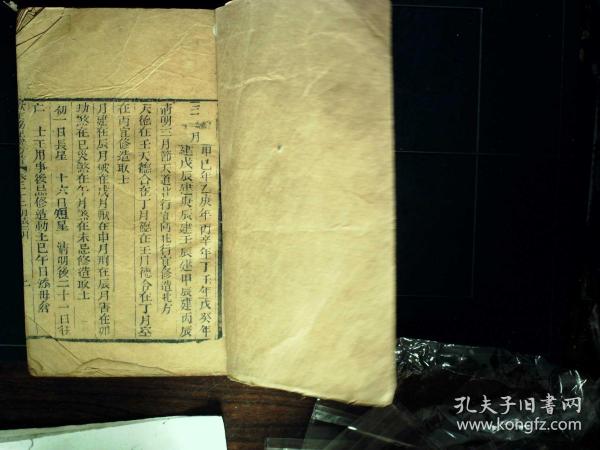 三月 甲己年 乙庚年 丙辛年 丁壬年 戊癸年
建戊辰 建庚辰 建壬辰 建甲辰 建丙辰
清明三月節天道北行宜向北行宜修造北方
天德在壬天德合在丁月德在壬月德合在丁月空
在丙宜修造取土
月建在辰月破在戌月厭在申月刑在辰月害在卯
劫煞在巳災煞在午月煞在未忌修造取土
初一日長星 十六日短星 清明後二十一日往
亡 土王用事後忌修造動土巳午日添母倉
孔夫子旧書网
www.kongfz.com